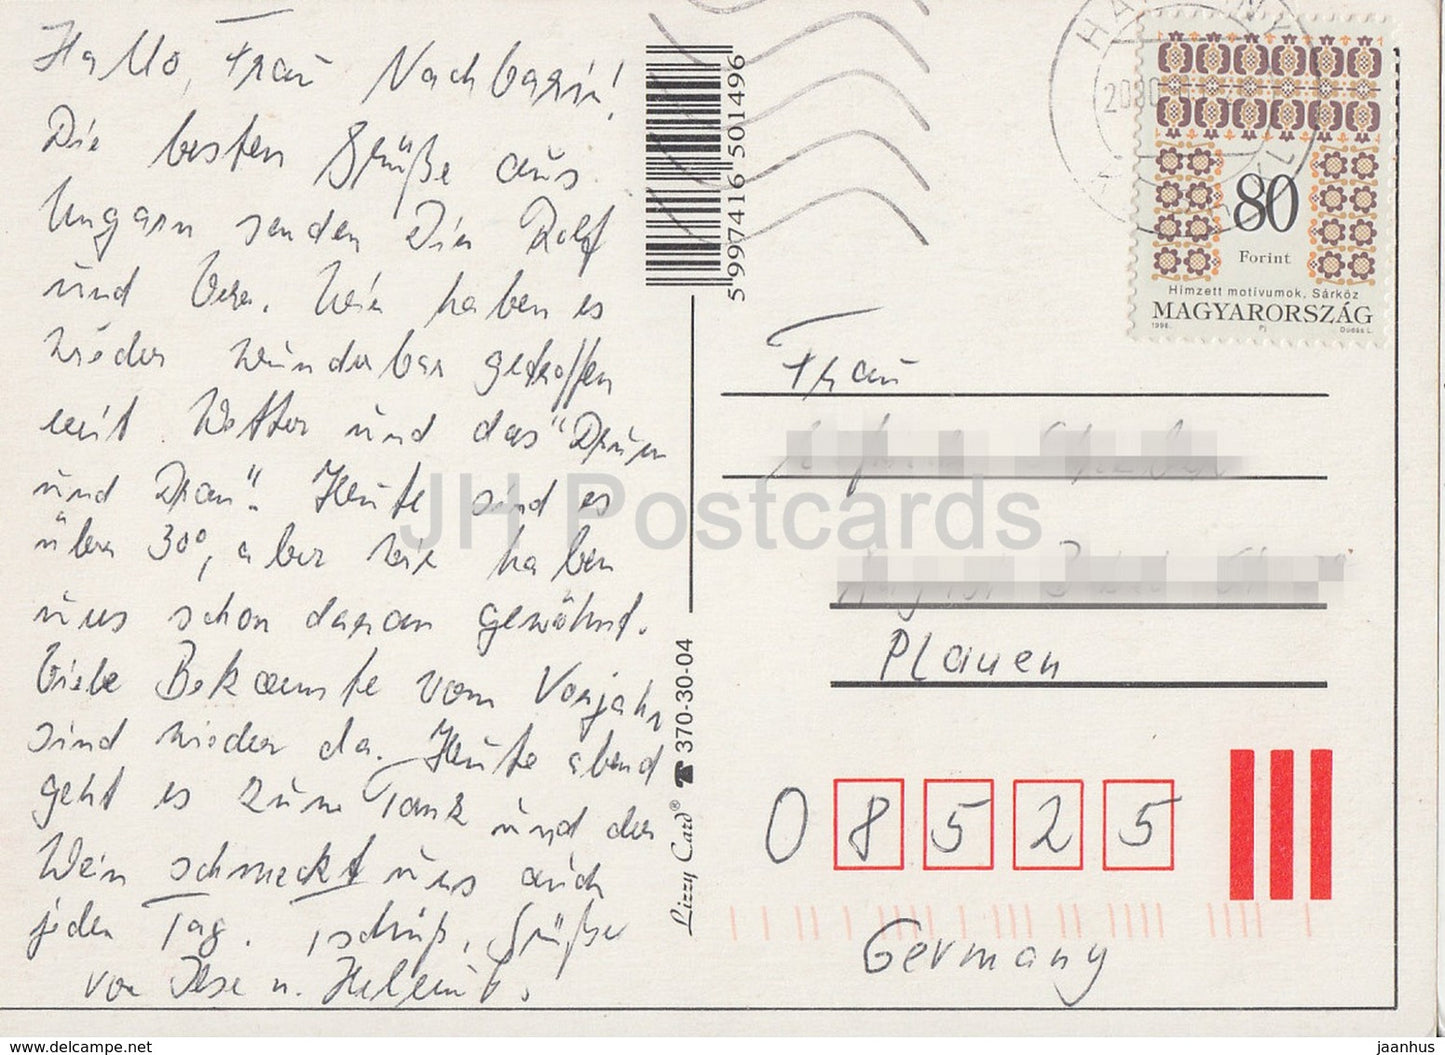 Hallo, Frau Nachbarin!
Die besten Grüße aus
Ungarn senden Dir Rolf
und Vera. Wir haben es
wieder wunderbar getroffen
mit Wetter und das "Drum
und Dran". Heute sind es
über 30°, aber wir haben
uns schon daran gewöhnt.
Viele Bekannte vom Vorjahr
sind wieder da. Heute abend
geht es zum Tanz und der
Wein schmeckt uns auch
jeden Tag. Tschüß, Grüße
von Ilse u. Helmut.
5997416 501496
370-30-04
Lizzy Card®
80
Forint
Hímzett motívumok, Sárköz
MAGYARORSZÁG
1998. Pj Dudás L.
Frau
Plauen
0 8 5 2 5
Germany
JH Postcards
www.delcampe.net
jaanhus